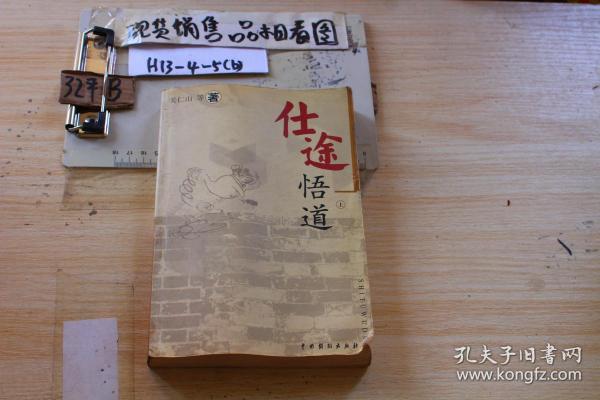 现货销售 品相看图
H13-4-5(b)
32开 B
关仁山 等 著
仕途
悟道
上
SHITUWUDAO
中国戏剧出版社
孔夫子旧书网
www.kongfz.com